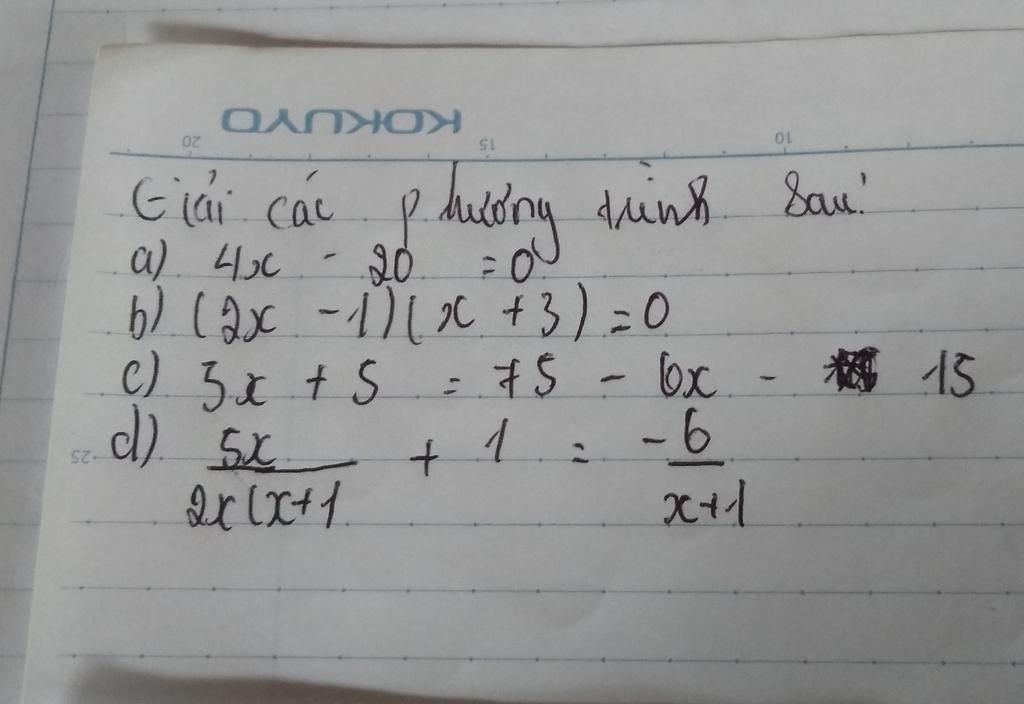 KOKUYO
20 15 10
Giải các phương trình sau:
a) 4x - 20 = 0
b) (2x - 1)(x + 3) = 0
c) 3x + 5 = 75 - 6x - 15
25
d) 5x/2x(x+1 + 1 = -6/x+1